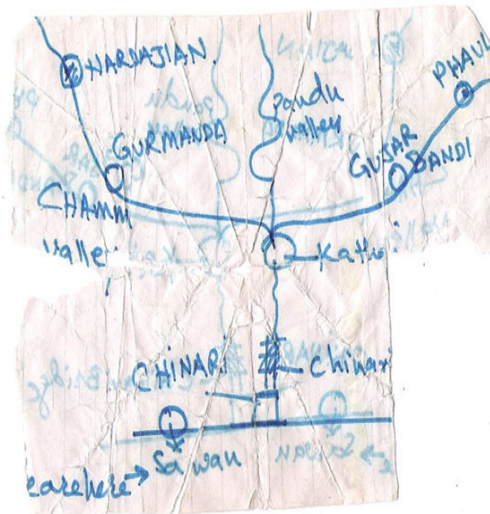 NARDAJIAN.
PHAUL
pandu
valley
GURMANDA
GUJAR
BANDI
CHAMM
Valle
Kathai
CHINARI
Chinari
Sawan
earehere → Sawan